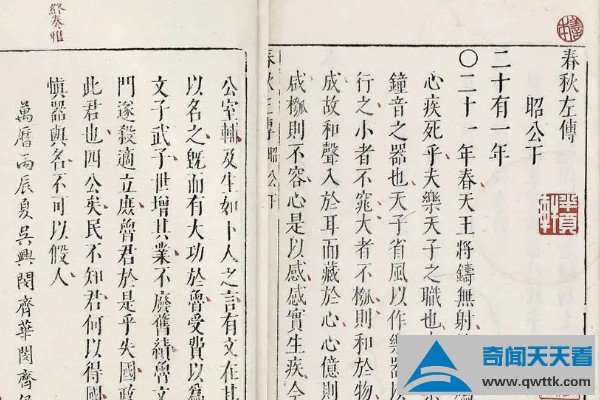 春秋左傳
昭公下
二十有一年
〇二十一年春天王將鑄無射
心疾死乎夫樂天子之職也
鐘音之器也天子省風以作樂
行之小者不窕大者不槬則和於物
成故和聲入於耳而藏於心心億則
咸槬則不容心是以感感實生疾今
春秋左傳 昭公下
公室輔及生如卜人之言有文在其
以名之既而有大功於魯受費以為
文子武子世增其業不廢舊績魯文
門遂殺適立庶魯君於是乎失國政
此君也四公矣民不知君何以得國
慎器與名不可以假人
萬曆丙辰夏吳興閔齊華閔齊
奇闻天天看
www.qwttk.com